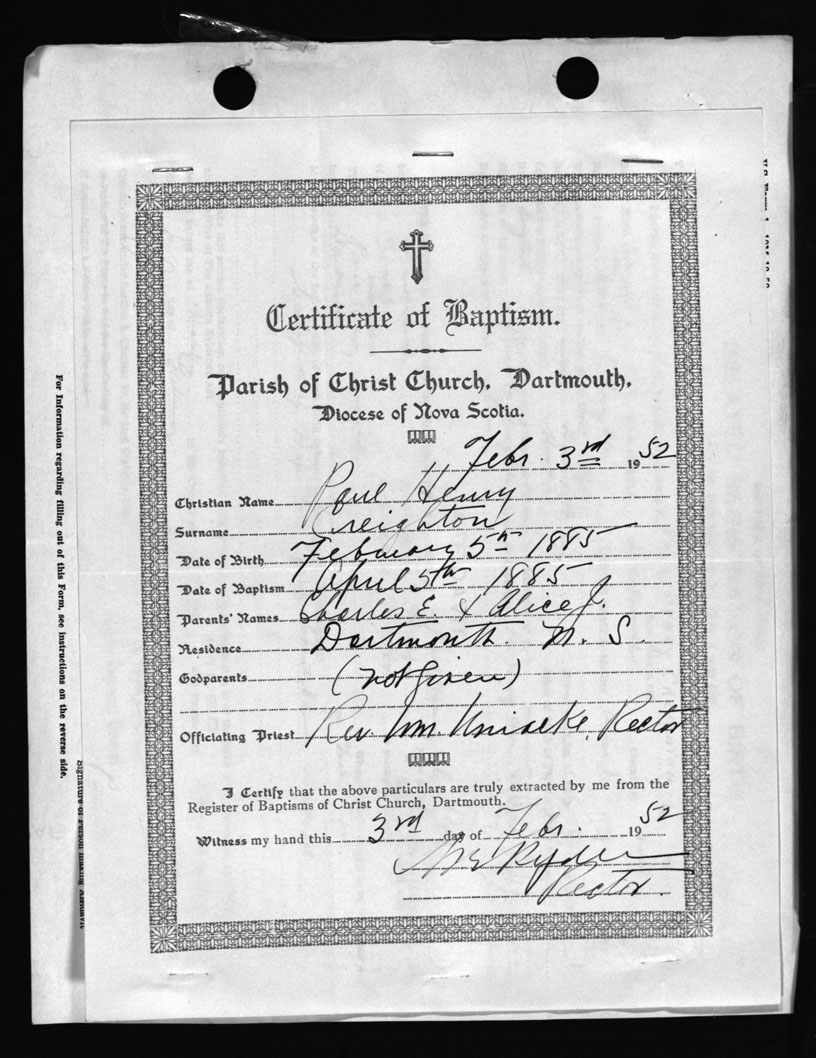 Certificate of Baptism.
Parish of Christ Church, Dartmouth,
Diocese of Nova Scotia.
Febr. 3rd 1952
Christian Name Paul Henry
Surname Creighton
Date of Birth February 5th 1885
Date of Baptism April 5th 1885
Parents' Names Charles E. & Alice J.
Residence Dartmouth N. S.
Godparents (not given)
Officiating Priest Rev. Wm. Rector
I Certify that the above particulars are truly extracted by me from the
Register of Baptisms of Christ Church, Dartmouth.
Witness my hand this 3rd day of Febr. 1952
Ryder
Rector.
For Information regarding filling out of this Form, see instructions on the reverse side.
Signature of Person making Affidavit